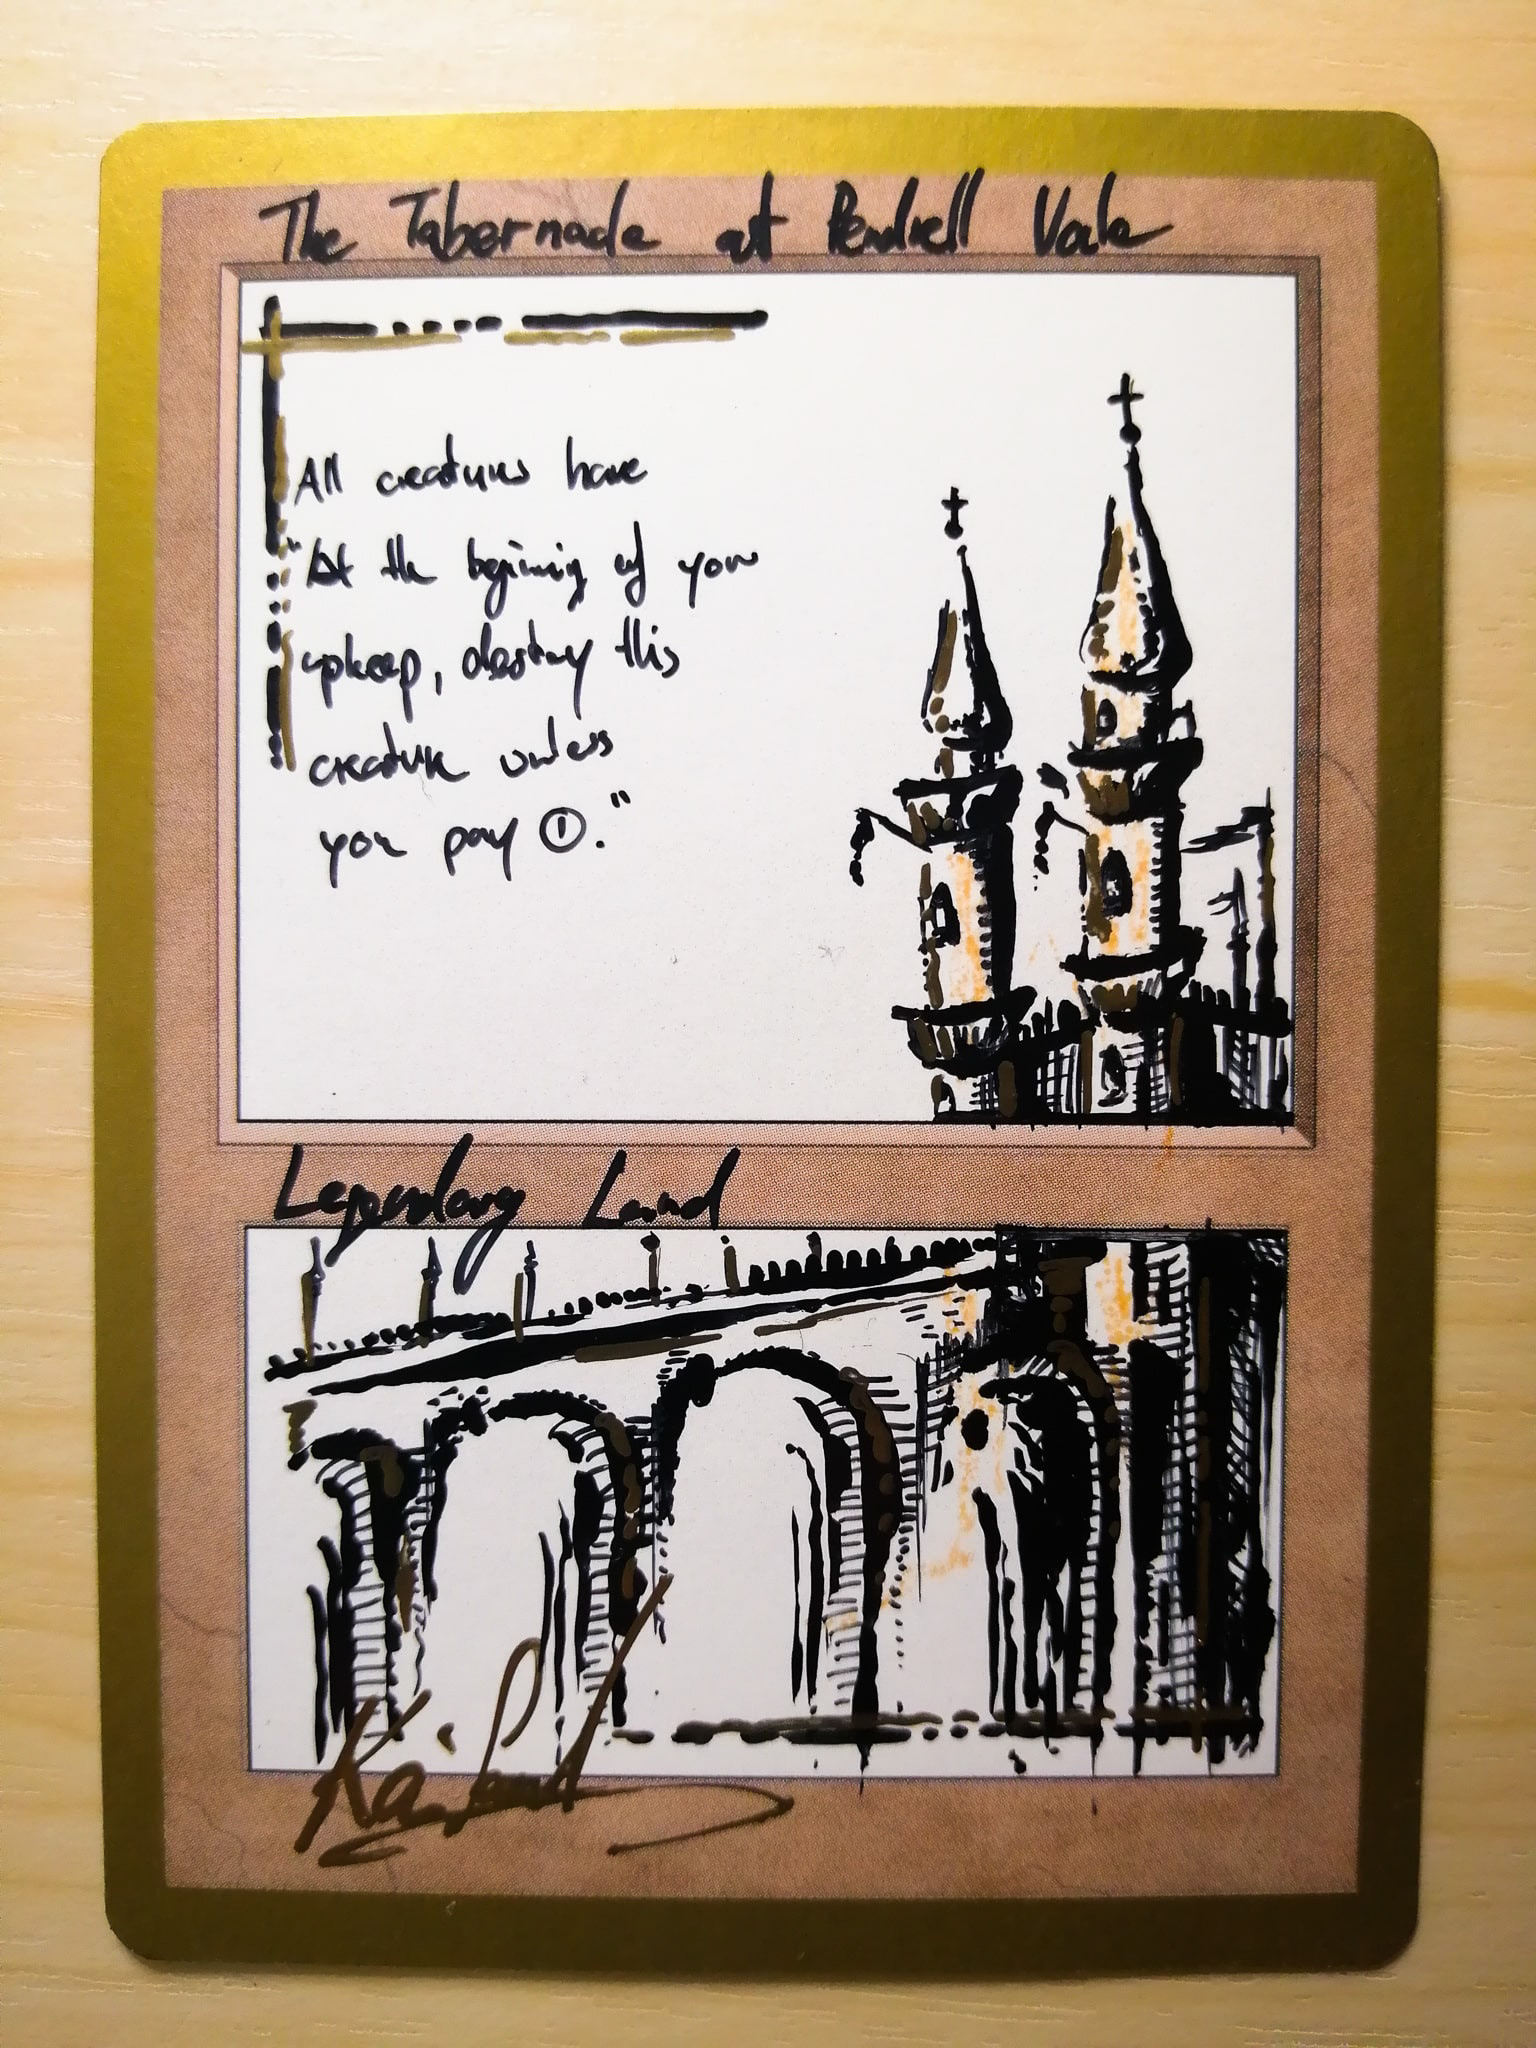 The Tabernacle at Pendrell Vale
All creatures have
"At the beginning of your
upkeep, destroy this
creature unless
you pay ①."
Legendary Land